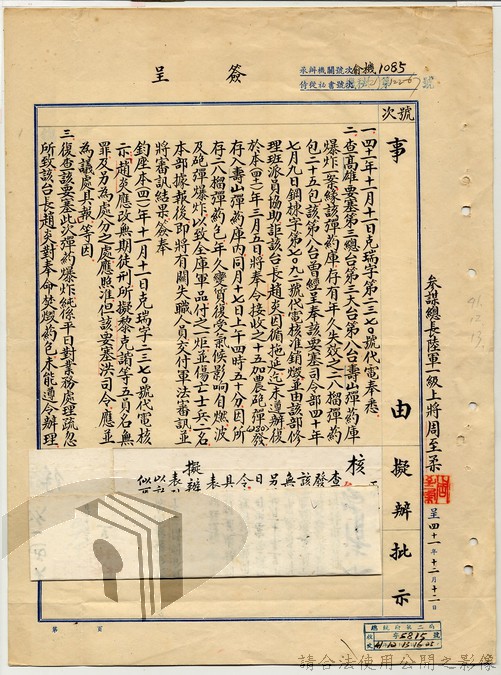 簽呈
承辦機關號次俞機1085
侍從祕書號次
號次
事由
擬辦
批示
一、四十一年十一月十一日克瑞字第一三七〇號代電奉悉
二、查高雄要塞第三總台第三大台第八台壽山彈藥庫
爆炸一案緣該彈藥庫存有年久失效之二八榴彈藥
包二十五包該第八台曾經呈奉該要塞司令部四十年
七月九日鋼樑字第七〇九二號代電核准銷燬並由該部修
理班派員協助詎該台長趙炎因循拖延迄未遵辦復
於本(四十一)年三月五日將奉令接收之十五加農砲彈430發
存入壽山彈藥庫內同月十七日上午四時五十分因所
存二八榴彈藥包年久變質復受氣候影響自燃波
及砲彈爆炸以致全庫軍品付之一炬並傷亡士兵二名
本部據報後即將有關失職人員交付軍法審訊並
將審訊結果簽奉
鈞座本(四一)年十一月十一日克瑞字一三七〇號代電核
示、趙炎應改無期徒刑所擬黎克諸等五員名無
罪及另為處分之處應照准但該要塞洪司令應並
為議處具報等因
三、復查該要塞此次彈藥爆炸純係平日對業務處理疏忽
所致該台長趙炎對奉命焚燬藥包未能遵令辦理
核
擬辦
參謀總長陸軍一級上將周至柔
呈四十一年十二月十二日
91.12.13.
第 頁
總統府第二局
5815
41.12.13.16.05
請合法使用公開之影像